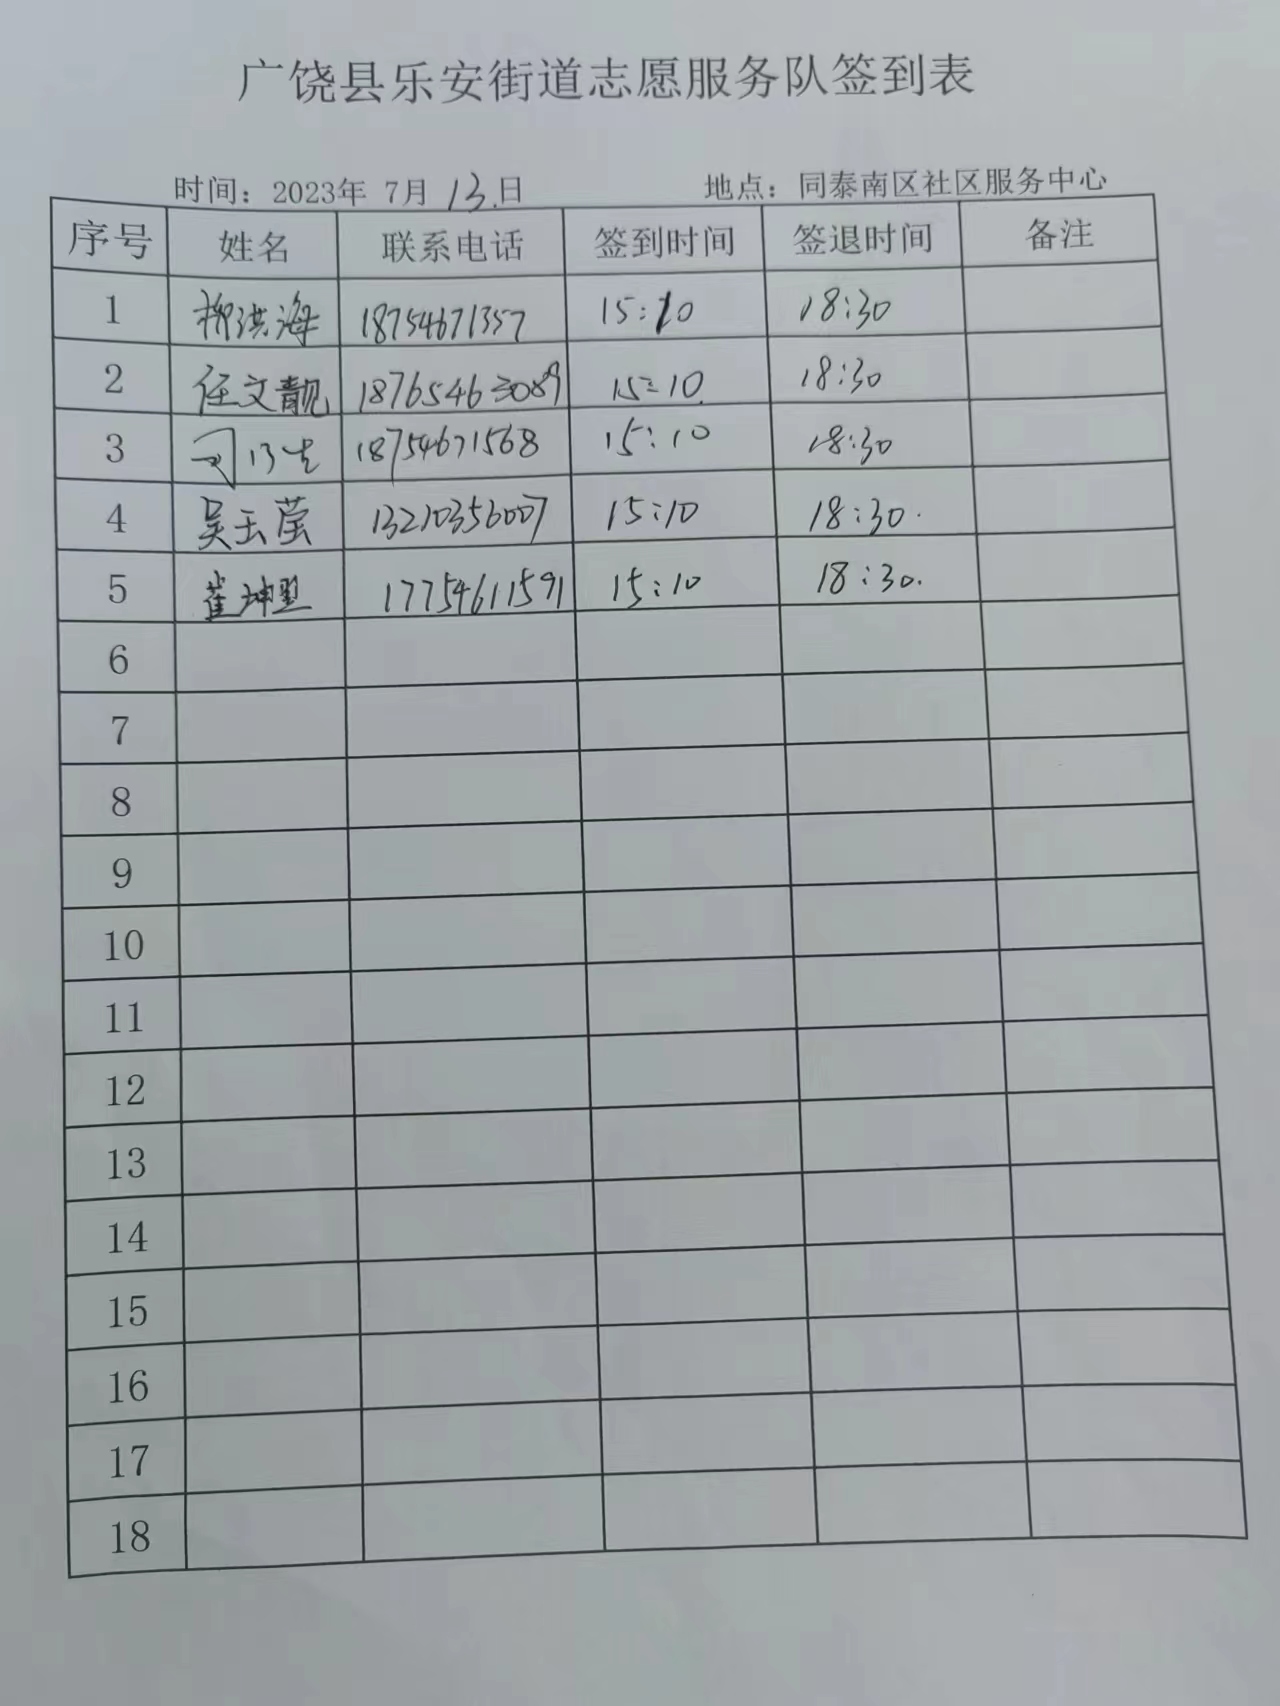 广饶县乐安街道志愿服务队签到表
时间：2023年 7月 13.日 地点：同泰南区社区服务中心
序号 姓名 联系电话 签到时间 签退时间 备注
1 柳洪海 18754671357 15:10 18:30
2 任文靓 18765463089 15:10. 18:30
3 18754671568 15:10 18:30
4 吴玉莹 13210356007 15:10 18:30.
5 崔坤 17754611591 15:10 18:30.
6
7
8
9
10
11
12
13
14
15
16
17
18